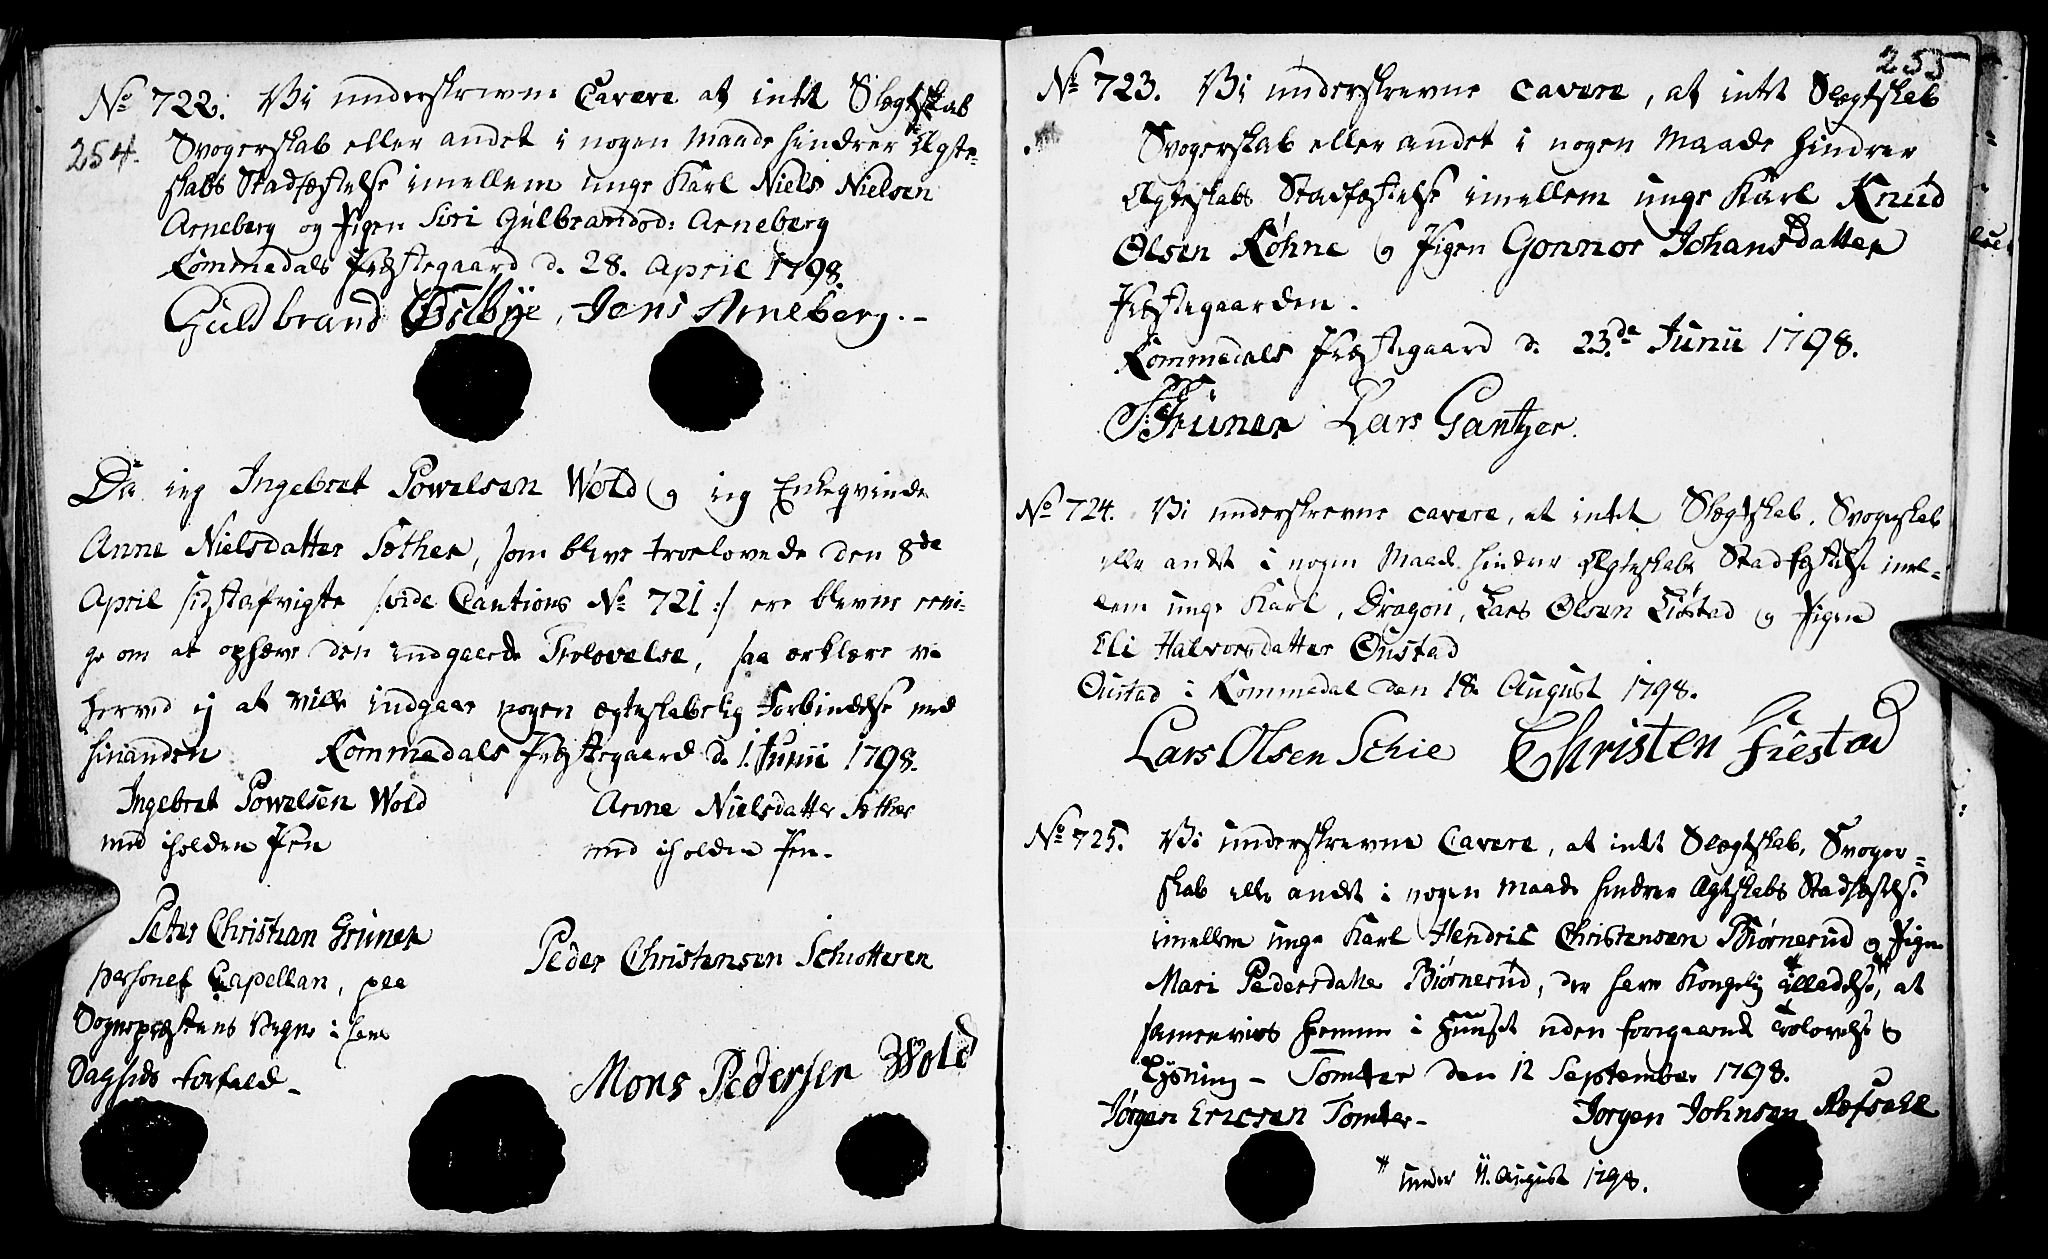 254.
No 722. Vi underskrevne Cavere at intet Slægtskab
Svogerskab eller andet i nogen Maade hindrer Ægte-
skabs Stadfæstelse imellem unge Karl Niels Nielsen
Arneberg og Pigen Siri Gulbrandsd: Arneberg
Rommedals Præstegaard d. 28. April 1798.
Guldbrand Østbye, Jens Arneberg.
Da ieg Ingebret Powelsen Wold og ieg Enkeqvinde
Anne Nielsdatter Sæther, som bleve troelovede den 8de
April sidstafvigte /:vide Cautions No 721:/ ere blevne eeni-
ge om at ophæve den indgaaede Trolovelse, saa erklære vi
herved ej at ville indgaae nogen ægteskabelig Forbindelse med
hinanden Rommedals Præstegaard d. 1. Junii 1798.
Ingebret Powelsen Wold
med iholden Pen
Anne Nielsdatter Sæther
med iholden Pen.
Peter Christian Grüner
personel Capellan, paa
Sognepræstens Vegne i hans
Peder Christensen Schiotteren
Mons Pedersen Wold
255
No 723. Vi underskrevne cavere, at intet Slægtskab
Svogerskab eller andet i nogen Maade hindrer
Ægteskabs Stadfæstelse imellem unge Karl Knud
Olsen Røhne og Pigen Gonnor Johansdatter
Præstegaarden.
Rommedals Præstegaard d. 23.de Junii 1798.
Grüner Lars Gantzer.
No 724. Vi underskrevne cavere, at intet Slægtskab, Svogerskab
eller andet i nogen Maade hindrer Ægteskabs Stadfæstelse imel-
lem unge Karl, Dragon, Lars Olsen Fiøstad og Pigen
Eli Halvorsdatter Oustad
Oustad i Rommedal den 18. August 1798.
Lars Olsen Schie Christen Fiestad
No 725. Vi underskrevne Cavere, at intet Slægtskab, Svoger-
skab eller andet i nogen Maade hindrer Ægteskabs Stadfæstelse
imellem unge Karl Hendric Christensen Biørnerud og Pigen
Mari Pedersdatter Biørnerud, der have Kongelig Tilladelse,# at
samenvies hiemme i Huuset uden foregaaende Trolovelse og
Lysning - Tomter den 12 September 1798.
Jørgen Ericsen Tomter - Jorgen Johnsen Refsahl
# under 11. August 1798.